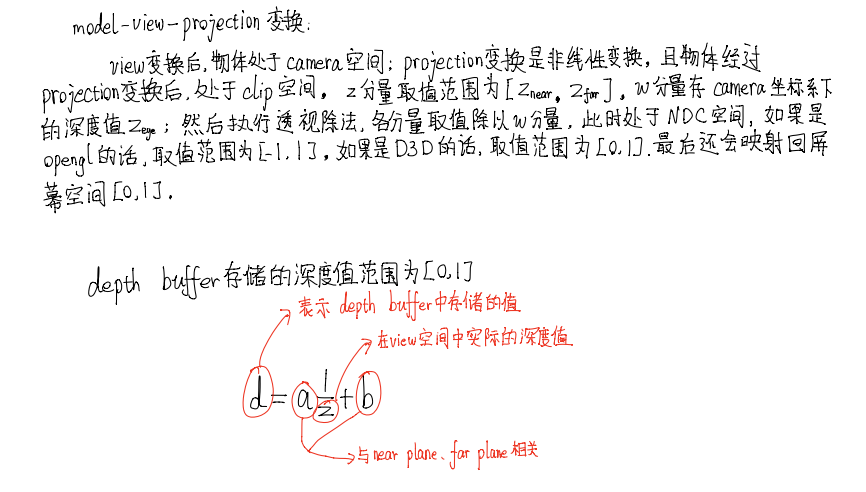 model-view-projection 变换:
view变换后,物体处于camera空间;projection变换是非线性变换,且物体经过
projection变换后,处于clip空间,z分量取值范围为[Znear,Zfar],w分量存camera坐标系下
的深度值Zeye;然后执行透视除法,各分量取值除以w分量,此时处于NDC空间,如果是
opengl的话,取值范围为[-1,1],如果是D3D的话,取值范围为[0,1].最后还会映射回屏
幕空间[0,1].
depth buffer存储的深度值范围为[0,1]
表示 depth buffer中存储的值
在view空间中实际的深度值
d=a1/z+b
与near plane、far plane相关